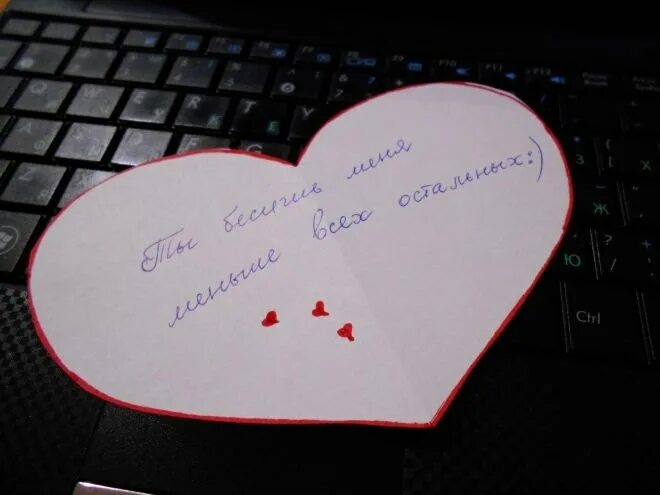 Ты бесишь меня
меньше всех остальных:)
F10
F11
F12
Q W E R T Y
Ж
Ю
Ctrl